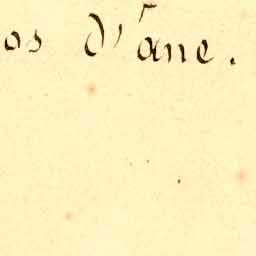 os d'ane.